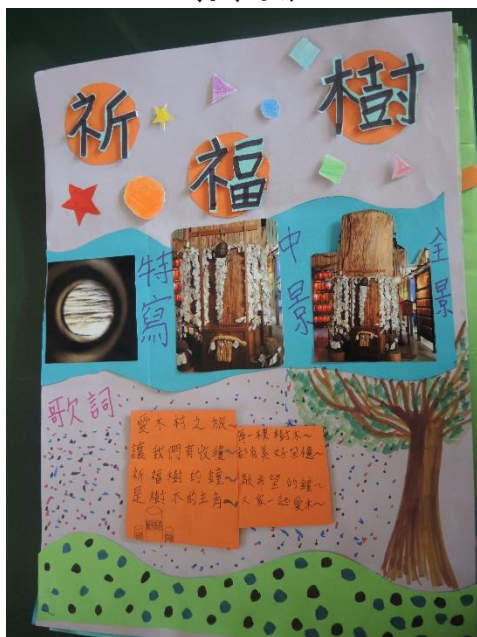 祈福樹
特寫
中景
全景
歌詞:
愛木村之旅~
讓我們有收穫~
祈福樹的鐘~
是樹木的主角~
每一棵樹木~
都有美好回憶~
敲希望的鐘~
大家一起愛木~